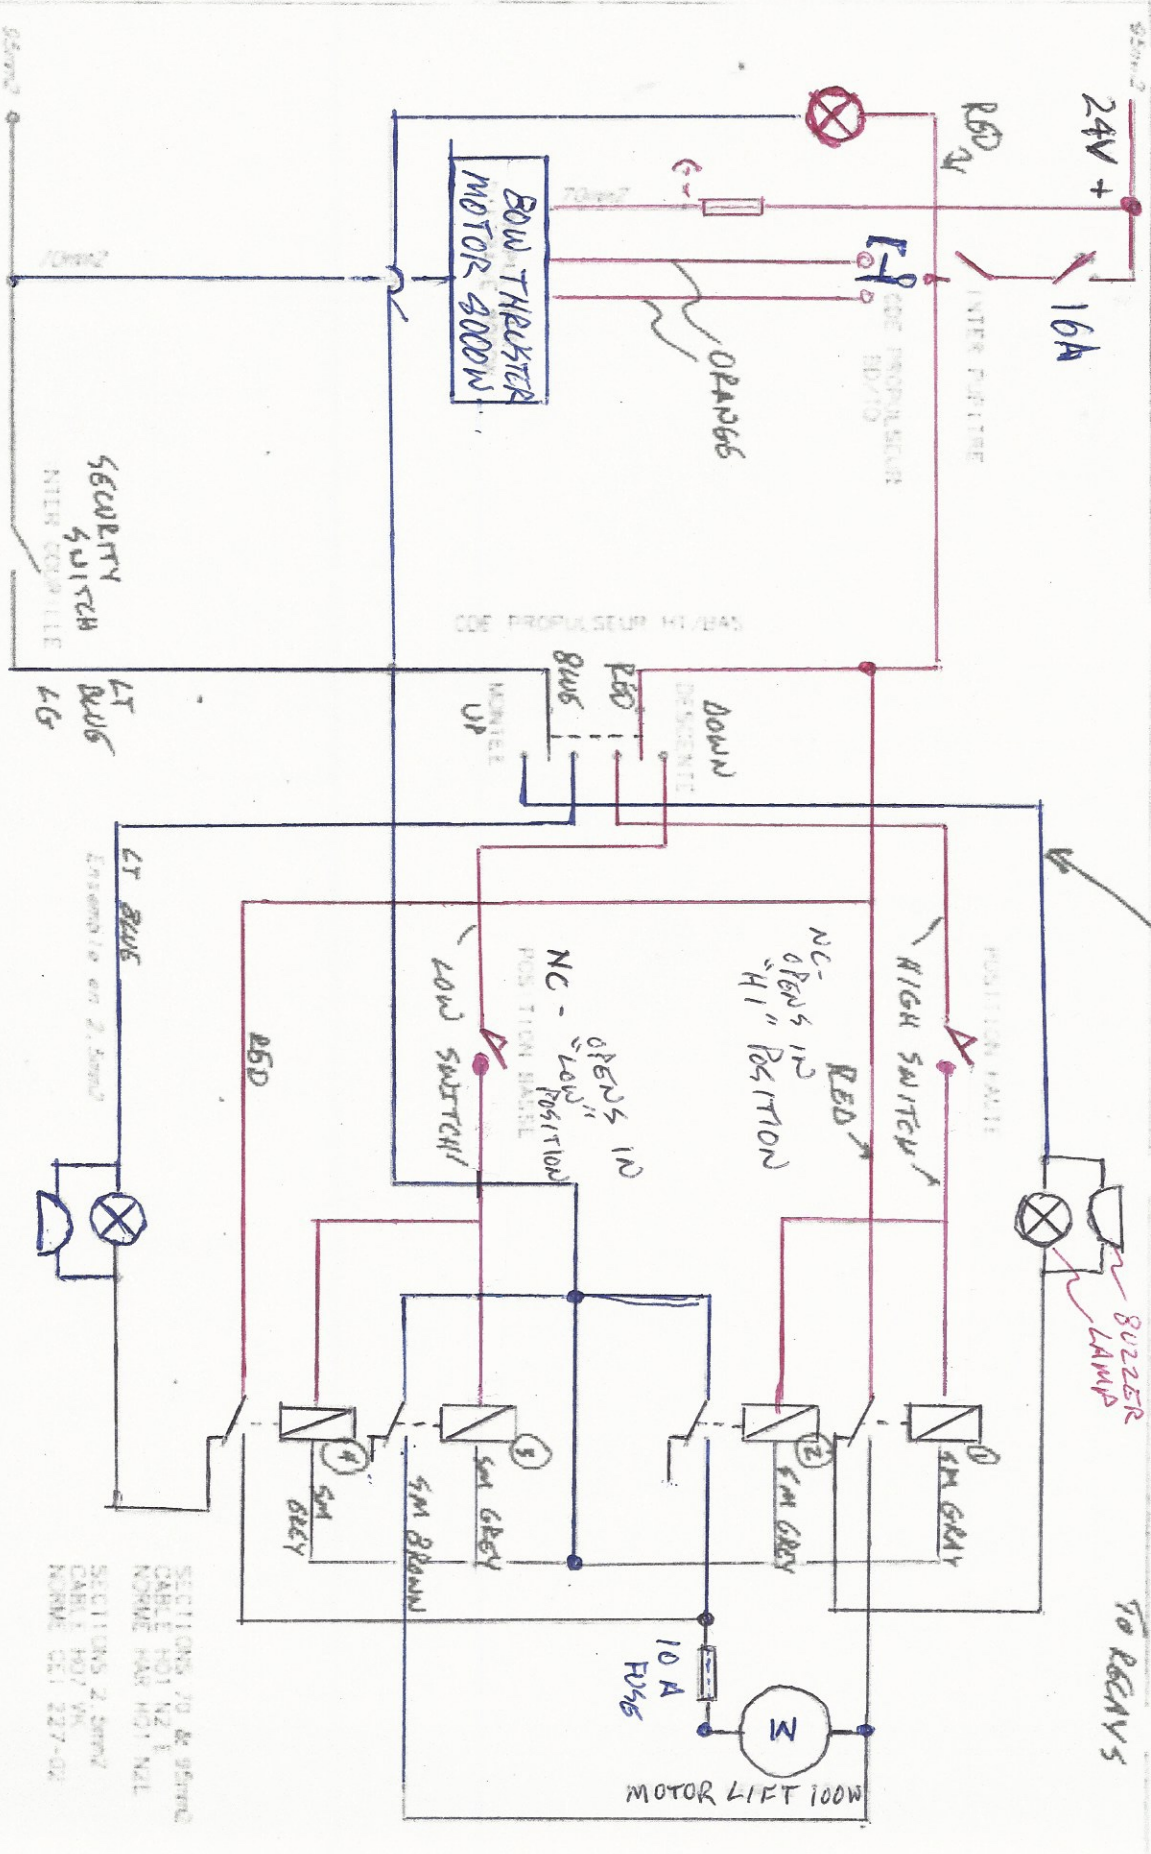 95mm2
24V +
16A
RED
INTER PUPITRE
CDE PROPULSEUR
BD/TD
ORANGE
70mm2
BOW THRUSTER
MOTOR 8000W
70mm2
95mm2
SECURITY
SWITCH
INTER COUPELLE
CDE PROPULSEUR HT/BAS
DOWN
DESCENTE
RED
BLUE
MONTEE
UP
LT
BLUE
LG
LT BLUE
Ensemble en 2.5mm2
POSITION HAUTE
HIGH SWITCH
NC-
OPENS IN
"HI" POSITION
RED
NC -
OPENS IN
"LOW"
POSITION
POSITION BASSE
LOW SWITCH
RED
BUZZER
LAMP
1
SM GRAY
2
SM GREY
3
SM GREY
SM BROWN
4
SM
GREY
TO RELAYS
10 A
FUSE
M
MOTOR LIFT 100W
SECTIONS 70 & 95mm2
CABLE HO1 N2 E
NORME HAR HO1 N2E
SECTIONS 2.5mm2
CABLE HO7 VK
NORME CEI 227-02